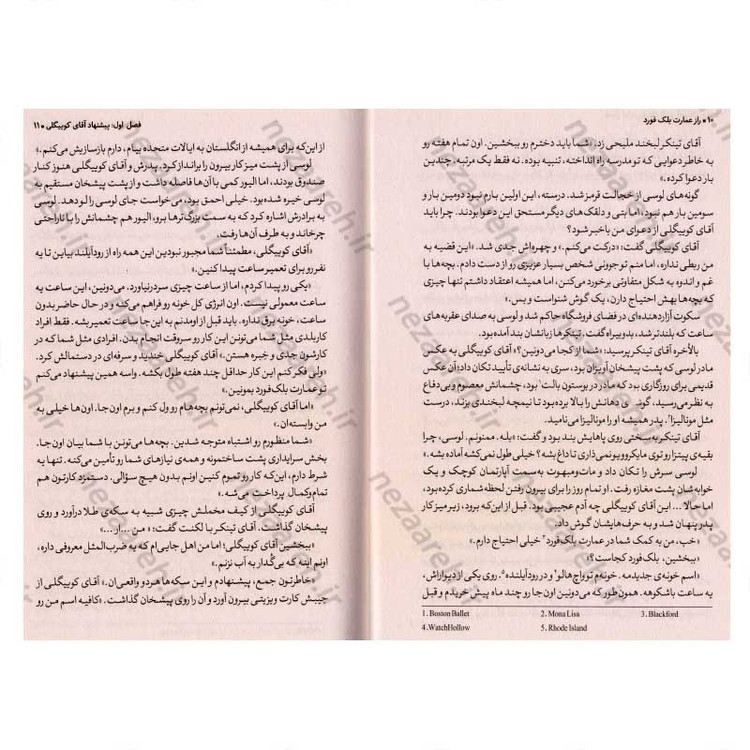 ۱۰ • راز عمارت بلک فورد
آقای تینکر لبخند ملیحی زد. «شما باید دخترم رو ببخشین. اون تمام هفته رو
به خاطر دعوایی که تو مدرسه راه انداخته، تنبیه بوده. نه فقط یک مرتبه. چندین
بار دعوا کرده.»
گونه‌های لوسی از خجالت قرمز شد. درسته، این اولین بارم نبود دومین بار و
سومین بار هم نبود، اما بتی و دلقک‌های دیگر مستحق این دعوا بودند. چرا باید
آقای کوییگلی از دعوای من باخبر شود؟
آقای کوییگلی گفت: «درکت می‌کنم.» و چهره‌اش جدی شد. «این قضیه به
من ربطی نداره، اما منم تو جوونی شخص بسیار عزیزی رو از دست دادم. بچه‌ها با
غم و اندوه به شکل متفاوتی برخورد می‌کنن، اما همیشه اعتقاد داشتم تنها چیزی
که بچه‌ها بهش احتیاج دارن، یک گوش شنواست و بس.»
سکوت آزاردهنده‌ای در فضای فروشگاه حاکم شد و لوسی به صدای عقربه‌های
ساعت که بلندتر شد، بدوبیراه گفت. تینکرها زبانشان بند آمده بود.
بالأخره آقای تینکر پرسید: «شما از کجا می‌دونین؟» آقای کوییگلی به عکس
مادر لوسی که پشت پیشخان آویزان بود، سری به نشانه‌ی تأیید تکان داد؛ آن عکس
قدیمی برای روزگاری بود که مادر در بوستون بالت¹ بود، چشمانش معصوم و بی‌دفاع
به نظر می‌رسید، گوشه‌ی دهانش را بالا برده بود تا نیمچه لبخندی بزند، درست
مثل مونالیزا². پدر همیشه او را مونالیزا می‌نامید.
آقای تینکر به‌سختی روی پاهایش بند بود و گفت: «بله. ممنونم. لوسی، چرا
بقیه‌ی پیتزا رو توی مایکروویو نمی‌ذاری تا داغ بشه؟ خیلی طول نمی‌کشه آماده بشه.»
لوسی سرش را تکان داد و مات‌ومبهوت به سمت آپارتمان کوچک و یک
خوابه‌شان پشت مغازه رفت. او تمام روز را برای بیرون رفتن لحظه‌شماری کرده بود،
اما حالا... این آقای کوییگلی چه آدم عجیبی بود. قبل از این‌که برود، زیر میز کار
پدر پنهان شد و به حرف‌هایشان گوش داد.
«خب، من به کمک شما در عمارت بلک‌فورد³ خیلی احتیاج دارم.»
«ببخشین، بلک‌فورد کجاست؟»
«اسم خونه‌ی جدیدمه. خونه‌م تو واچ‌هالو⁴ و در رودآیلنده⁵. روی یکی از دیواراش،
یه ساعت باشکوهه. همون‌طور که می‌دونین اون‌جا رو چند ماه پیش خریدم و قبل
1. Boston Ballet 2. Mona Lisa 3. Blackford
4. WatchHollow 5. Rhode Island
فصل اول: پیشنهاد آقای کوییگلی • ۱۱
از این‌که برای همیشه از انگلستان به ایالات متحده بیام، دارم بازسازیش می‌کنم.»
لوسی از پشت میز کار بیرون را برانداز کرد. پدرش و آقای کوییگلی هنوز کنار
صندوق بودند، اما الیور کمی با آن‌ها فاصله داشت و از پشت پیشخان مستقیم به
لوسی خیره شده بود. خیلی احمق بود، می‌خواست جای لوسی را لو دهد. لوسی
به برادرش اشاره کرد که به سمت بزرگ‌ترها برو، الیور هم چشمانش را با ناراحتی
چرخاند و به طرف آن‌ها رفت.
«آقای کوییگلی، مطمئناً شما مجبور نبودین این همه راه از رودآیلند بیاین تا یه
نفر رو برای تعمیر ساعت پیدا کنین.»
«یکی رو پیدا کردم، اما از ساعت چیزی سردرنیاورد. می‌دونین، این ساعت یه
ساعت معمولی نیست. اون انرژی کل خونه رو فراهم می‌کنه و در حال حاضر بدون
ساعت، خونه برق نداره. باید قبل از اومدنم به این‌جا ساعت تعمیر بشه. فقط افراد
کاربلدی مثل شما می‌تونن این کار رو سروقت انجام بدن. افرادی مثل شما که در
کارشون جدی و خبره هستن.» آقای کوییگلی خندید و سرفه‌ای در دستمالش کرد.
«ولی فکر کنم این کار حداقل چند هفته طول بکشه. واسه همین پیشنهاد می‌کنم
تو عمارت بلک‌فورد بمونین.»
«اما آقای کوییگلی، نمی‌تونم بچه‌هام رو ول کنم و برم اون‌جا. اون‌ها خیلی به
من وابسته‌ان.»
«شما منظورم رو اشتباه متوجه شدین. بچه‌ها می‌تونن با شما بیان اون‌جا.
بخش سرایداری پشت ساختمونه و همه‌ی نیازهای شما رو تأمین می‌کنه. تنها یه
شرط دارم، این‌که کار رو تموم کنین اونم بدون هیچ سؤالی. دستمزد کارتون هم
تمام‌وکمال پرداخت می‌شه.»
آقای کوییگلی از کیف مخملش چیزی شبیه به سکه‌ی طلا درآورد و روی
پیشخان گذاشت. آقای تینکر با لکنت گفت: «من... ار...»
«ببخشین آقای کوییگلی؛ اما من اهل جایی‌ام که یه ضرب‌المثل معروفی داره،
اونم اینه که بی‌گدار به آب نزنم.»
«خاطرتون جمع، پیشنهادم و این سکه‌ها هردو واقعی‌ان.» آقای کوییگلی از
جیبش کارت ویزیتی بیرون آورد و آن را روی پیشخان گذاشت. «کافیه اسم من رو
nezaareh.ir